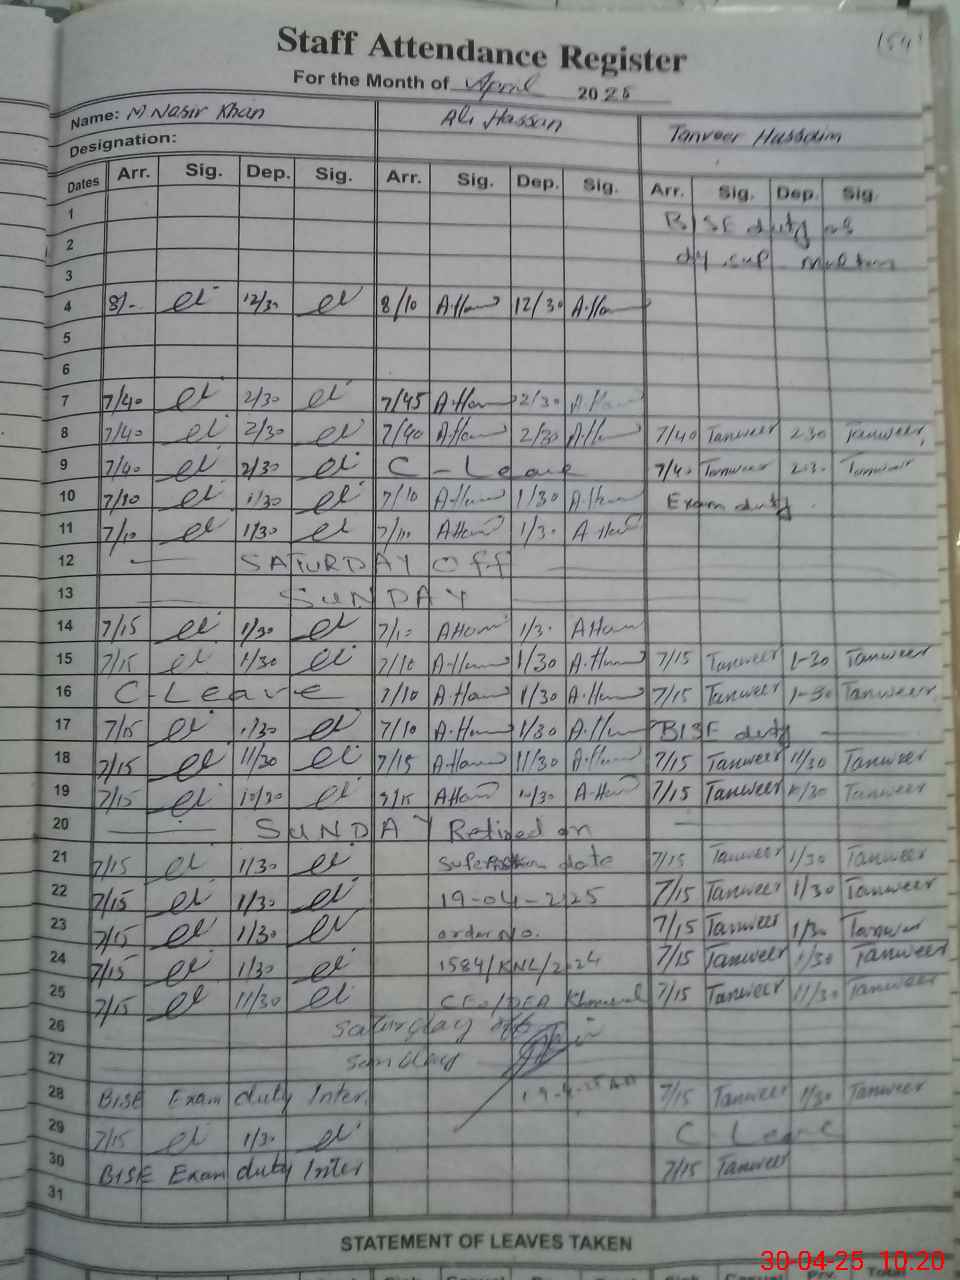 Staff Attendance Register
For the Month of April 2025
Name: M Nasir Khan Ali Hassan Tanveer Hussain
Designation:
Dates Arr. Sig. Dep. Sig. Arr. Sig. Dep. Sig. Arr. Sig. Dep. Sig.
1 BISE duty as
2 dy. sup. Multan
3
4 8/- 12/30 8/10 12/30
5
6
7 7/40 2/30 7/45 2/30
8 7/40 2/30 7/40 2/30 7/40 Tanweer 2-30 Tanweer
9 7/40 2/30 C-Leave 7/40 Tanweer 2-30 Tanweer
10 7/10 1/30 7/10 1/30 Exam duty
11 7/10 1/30 7/10 1/30
12 SATURDAY Off
13 SUNDAY
14 7/15 1/30 7/10 1/30
15 7/15 1/30 7/10 1/30 7/15 Tanweer 1-30 Tanweer
16 C-Leave 7/10 1/30 7/15 Tanweer 1-30 Tanweer
17 7/15 1/30 7/10 1/30 BISE duty
18 7/15 11/30 7/15 11/30 7/15 Tanweer 11/30 Tanweer
19 7/15 10/30 7/15 Tanweer Tanweer
20 SUNDAY Retired on
21 7/15 1/30 date 7/15 Tanweer 1/30 Tanweer
22 7/15 1/30 19-04-2025 7/15 Tanweer 1/30 Tanweer
23 7/15 1/30 order No. 7/15 Tanweer 1/30 Tanweer
24 7/15 1/30 1584/KNL/2024 7/15 Tanweer 1/30 Tanweer
25 7/15 11/30 CEO/DEA Khanewal 7/15 Tanweer 11/30 Tanweer
26 Saturday off
27 Sunday
28 BISE Exam duty Inter. 7/15 Tanweer 1/30 Tanweer
29 7/15 1/30 C-Leave
30 BISE Exam duty Inter 7/15 Tanweer
31
STATEMENT OF LEAVES TAKEN
30-04-25 10:20